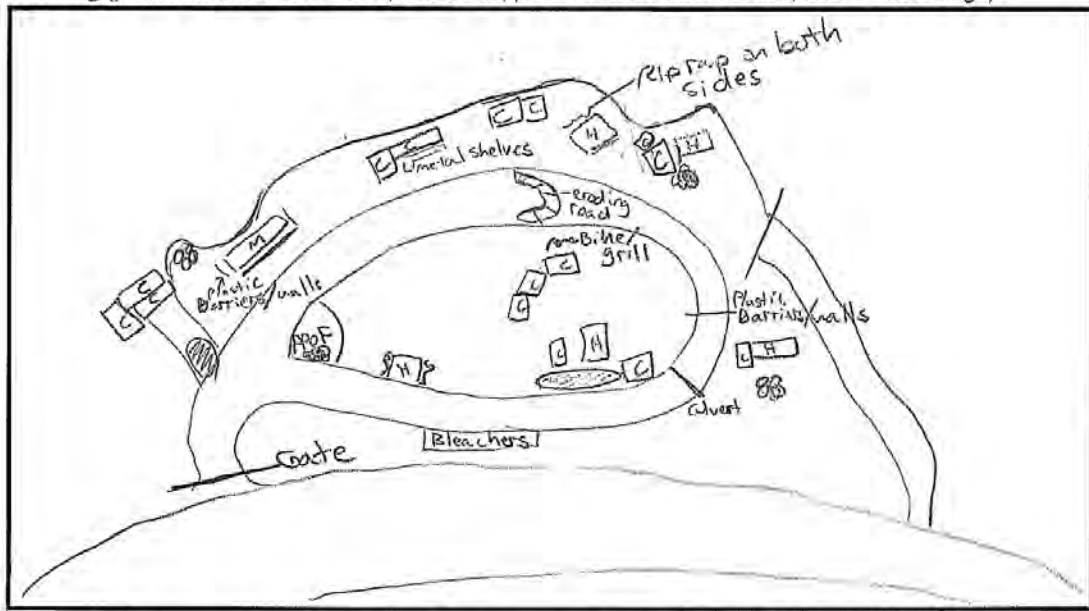 Rip rap on both
sides
C C
H
C C
metal shelves
C
C H
eroding
road
Bike/
grill
M
Plastic
Barriers/walls
C
C
C
C
C
C
Plastic
Barriers/walls
PPOF
H
C H
C
C H
culvert
Bleachers
Gate